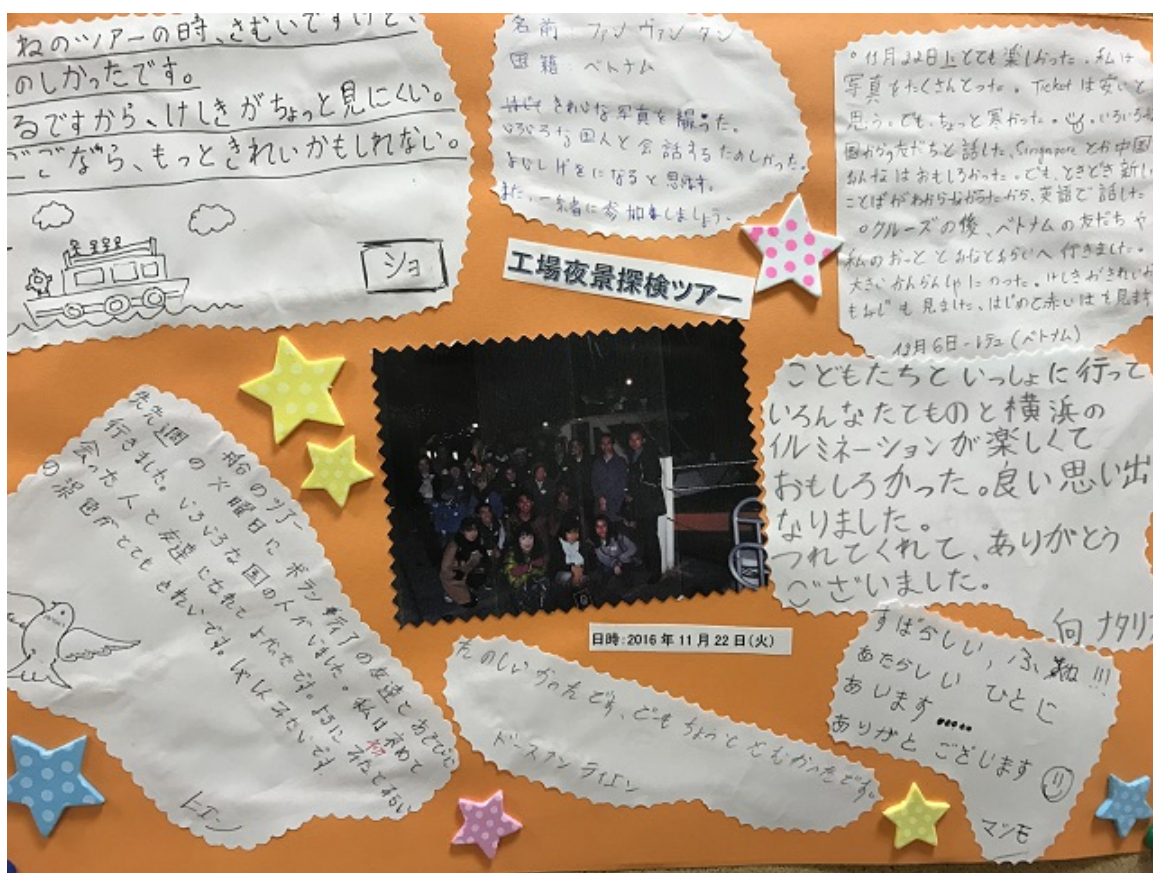 ねのツアーの時、さむいですけど、
のしかったです。
るですから、けしきがちょっと見にくい。
ごごなら、もっときれいかもしれない。
ショ
名前：ファンヴァンタン
国籍：ベトナム
きれいな写真を撮った。
いろいろな国人と会話するたのしかった。
になると思います。
また、一緒に参加しましょう。
11月22日はとても楽しかった。私は
写真をたくさんとった。Ticketは安いと
思う。でも、ちょっと寒かった。いろいろな
国からの友だちと話した、Singaporeとか中国
みんなはおもしろかった。でも、ときどき新しい
ことばがわからなかったから、英語で話した
クルーズの後、ベトナムの友だちや
私のおっととみなとみらいへ行きました。
大きいかんらんしゃにのった。けしきがきれい
もみじも見ました、はじめて赤いはを見ま
12月6日-(ベトナム)
工場夜景探検ツアー
こどもたちといっしょに行って
いろんなたてものと横浜の
イルミネーションが楽しくて
おもしろかった。良い思い出
なりました。
つれてくれて、ありがとう
ございました。
向ナタリ
日時：2016年11月22日(火)
船のツアー
先先週の火曜日にボランティアの友達とあそびに
行きました。いろいろな国の人がいました。私は初めて
会った人と友達になれてよかったです。よるにみなとみらい
の景色がとてもきれいです。しゃしんみたいです。
トエン
たのしいかったです、でもちょっと
すばらしい、ふね!!!
あたらしい ひとじ
あいます.....
ありがと ございます
マンモ